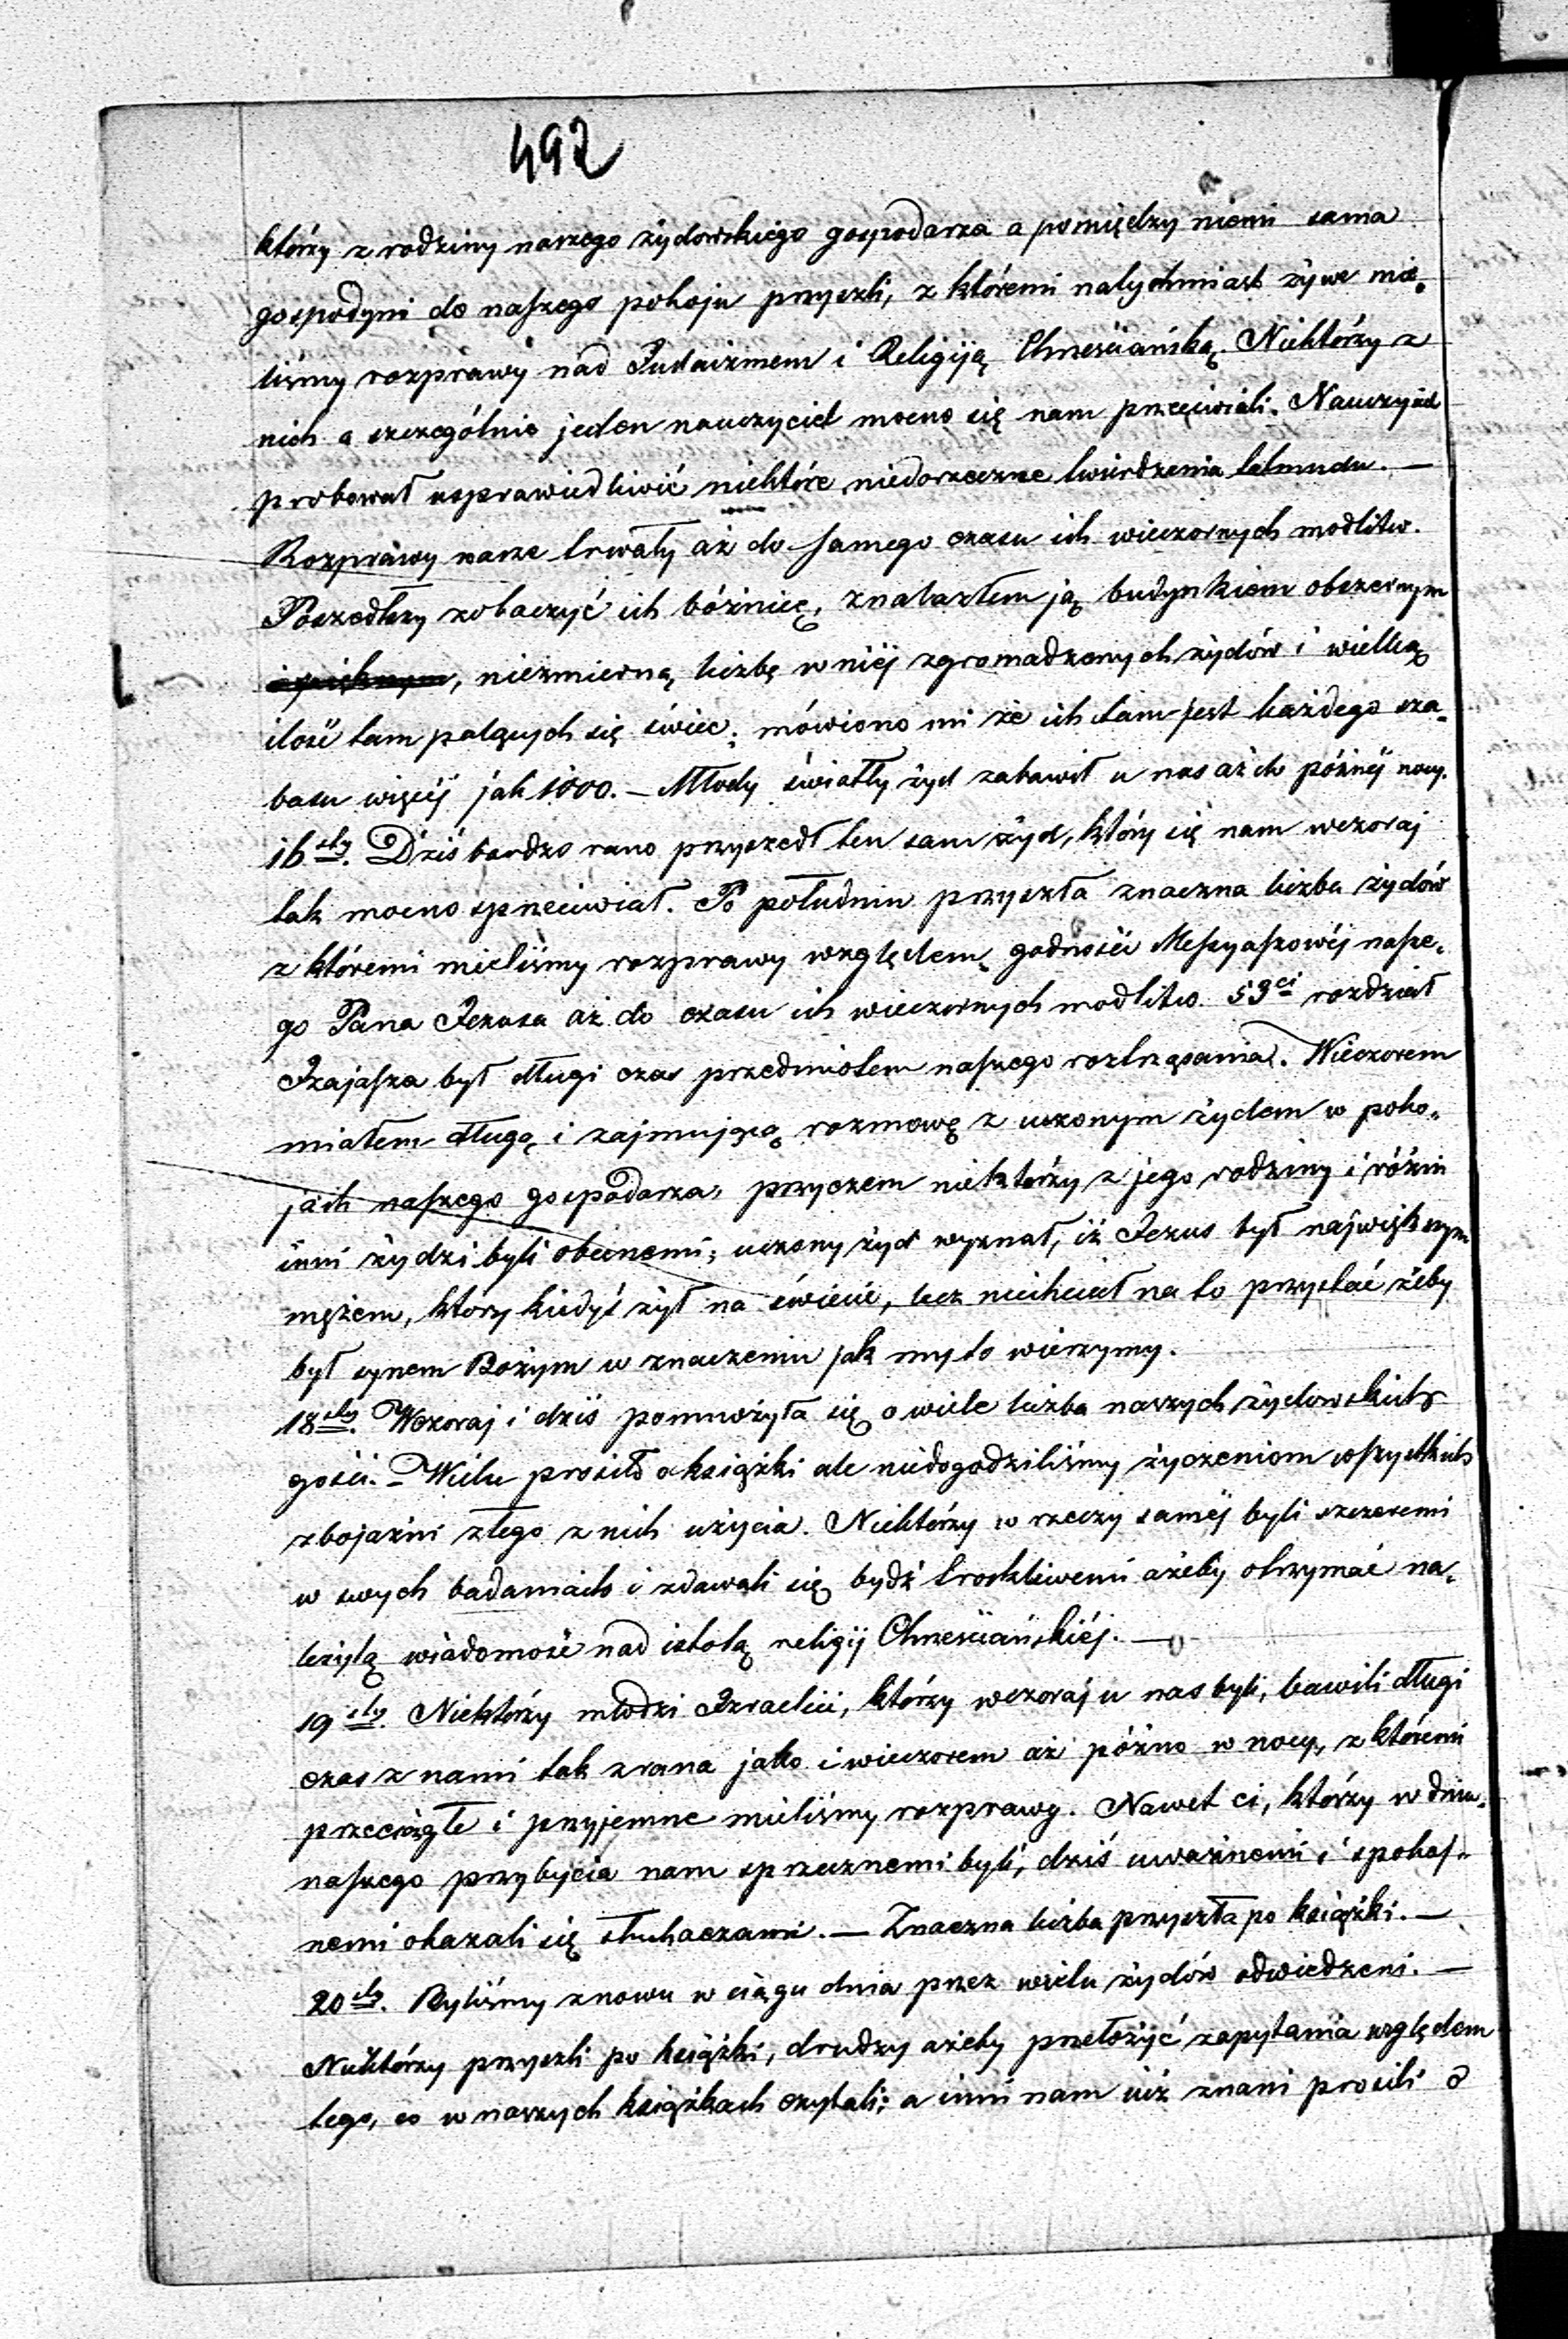 492
którzy z rodziny naszego żydowskiego gospodarza a pomiędzy niemi sama
gospodyni do naszego pokoju przyszli, z któremi natychmiast żywe mie-
liśmy rozprawy nad Judaizmem i Religiją Chrześciańską. Niektórzy z
nich a szczególnie jeden nauczyciel mocno się nam przeciwiali. Nauczyciel
probował usprawiedliwić niektóre niedorzeczne twierdzenia talmudu. —
Rozprawy nasze trwały aż do samego czasu ich wieczornych modlitw.
Poszedłszy zobaczyć ich bóżnicę, znalazłem ją budynkiem obszernym
, niezmierną liczbę w niéj zgromadzonych żydów i wielką
ilość tam palących się świec; mówiono mi że ich tam jest każdego sza-
basu więcéj jak 1000. — Młody światły żyd zabawił u nas aż do późnéj nocy.
16sty. Dziś bardzo rano przyszedł ten sam żyd, który się nam wczoraj
tak mocno sprzeciwiał. Po południu przyszła znaczna liczba żydów
z któremi mieliśmy rozprawy względem godności Messyaszowéj nasze-
go Pana Jezusa aż do czasu ich wieczornych modlitw. 53ci rozdział
Izajasza był długi czas przedmiotem naszego roztrząsania. Wieczorem
miałem długą i zajmującą rozmowę z uczonym żydem w poko-
jach naszego gospodarza, przyczem niektórzy z jego rodziny i różni
inni żydzi byli obecnemi; uczony żyd wyznał, iż Jezus był największym
mężem, ktory kiedyś żył na świecie, lecz niechciał na to przystać żeby
był synem Bożym w znaczeniu jak my to wierzymy.
18sty. Wczoraj i dziś pomnożyła się o wiele liczba naszych żydowskich
gości. — Wielu prosiło o książki ale niedogodziliśmy życzeniom wszystkich
z bojaźni złego z nich użycia. Niektórzy w rzeczy saméj byli szczeremi
w swych badaniach i zdawali się bydź troskliwemi ażeby otrzymać na-
leżytą wiadomość nad istotą religij Chrześciańskiéj. —
19sty. Niektórzy młodzi Izraelici, którzy wczoraj u nas byli, bawili długi
czas z nami tak zrana jako i wieczorem aż późno w nocy, z któremi
przeciągłe i przyjemne mieliśmy rozprawy. Nawet ci, którzy w dniu
naszego przybycia nam sprzecznemi byli, dziś uważnemi i spokoj-
nemi okazali się słuchaczami. — Znaczna liczba przyszła po książki. —
20sty. Byliśmy znowu w ciągu dnia przez wielu żydów odwiedzeni. —
Niektórzy przyszli po książki, drudzy ażeby przełożyć zapytania względem
tego, co w naszych książkach czytali; a inni nam już znani prosili o